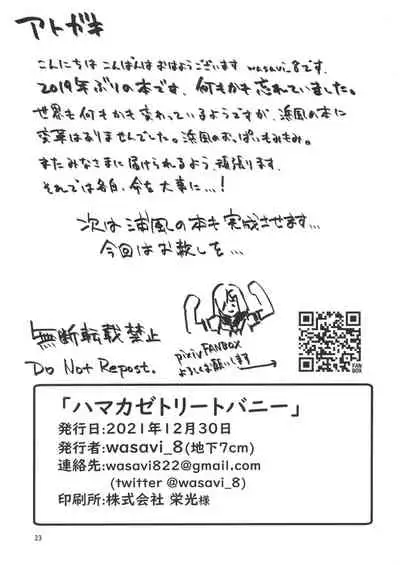 アトガキ
こんにちは こんばんは おはようございます wasavi_8です。
2019年ぶりの本です、何もかも忘れていました。
世界も何もかも変わっているようですが、浜風の本に
変革はありませんでした。浜風のおっぱいもみもみ。
またみなさまに届けられるよう、頑張ります。
それでは各自、命を大事に…!
次は浦風の本も完成させます…
今回はお赦しを…
無断転載禁止
Do Not Repost.
pixivFANBOX
よろしくお願いします
FAN
BOX
「ハマカゼトリートバニー」
発行日:2021年12月30日
発行者:wasavi_8(地下7cm)
連絡先:wasavi822@gmail.com
(twitter @wasavi_8)
印刷所:株式会社 栄光様
23